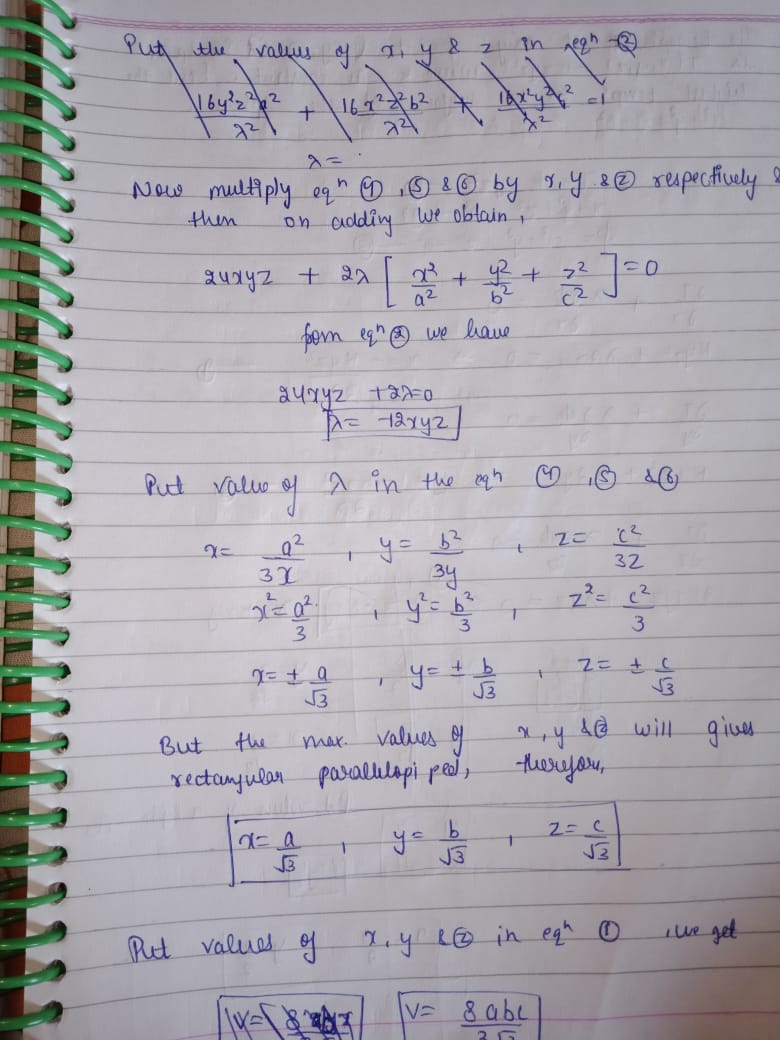 Put the values of x, y & z in eqⁿ ②
16y²z²a²/λ² + 16x²z²b²/λ² + 16x²y²c²/λ² = 1
λ =
Now multiply eqⁿ ④, ⑤ & ⑥ by x, y & z respectively &
then on adding we obtain,
24xyz + 2λ [ x²/a² + y²/b² + z²/c² ] = 0
from eqⁿ ② we have
24xyz + 2λ = 0
λ = -12xyz
Put value of λ in the eqⁿ ④, ⑤ & ⑥
x = a²/3x , y = b²/3y , z = c²/3z
x² = a²/3 , y² = b²/3 , z² = c²/3
x = ± a/√3 , y = ± b/√3 , z = ± c/√3
But the max. values of x, y & z will gives
rectangular parallelopiped, therefore,
x = a/√3 , y = b/√3 , z = c/√3
Put values of x, y & z in eqⁿ ① , we get
V = 8 V = 8abc/3√3